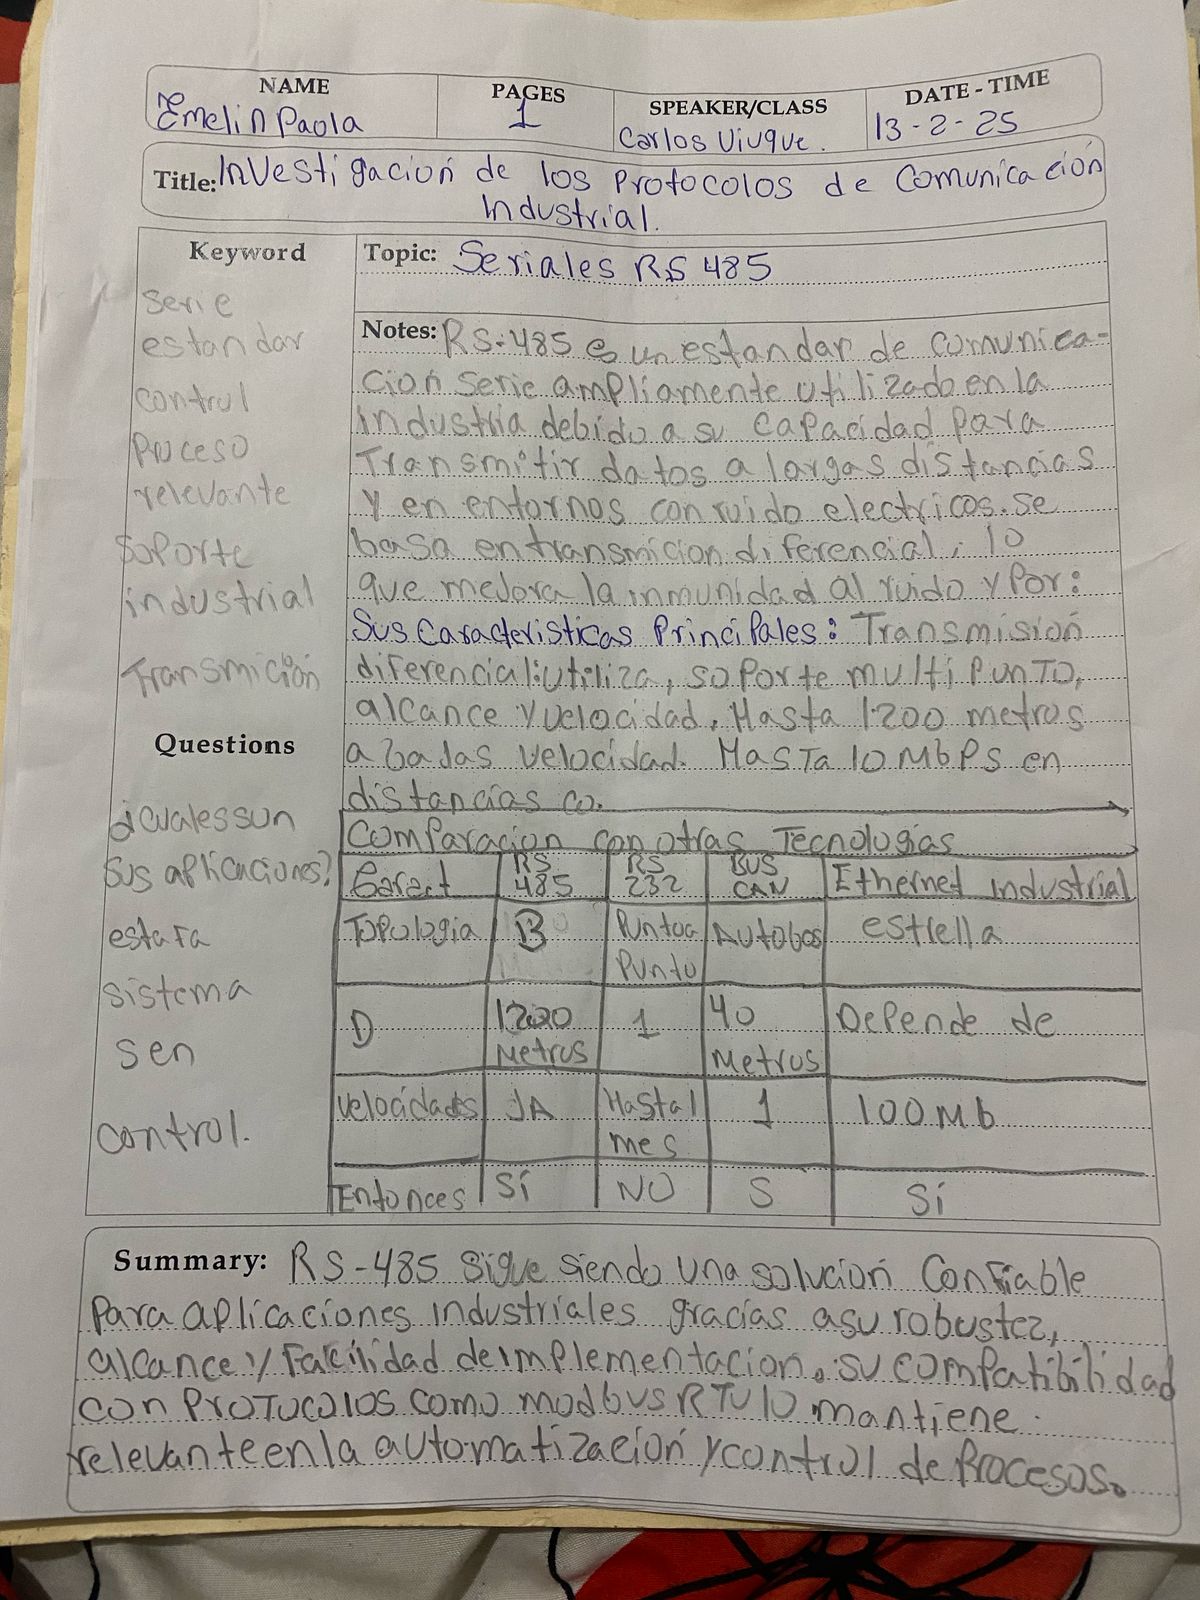 NAME
Emelin Paola
PAGES
1
SPEAKER/CLASS
Carlos Viuque.
DATE - TIME
13-2-25
Title: Investigación de los Protocolos de Comunicación
Industrial.
Keyword
serie
estandar
control
Proceso
relevante
soporte
industrial
Transmición
Questions
¿cuales son
sus aplicaciones?
esta ra
sistema
sen
control.
Topic: Seriales RS 485
Notes: RS-485 es un estandar de comunica-
ción serie ampliamente utilizado en la
industria debido a su capacidad para
Transmitir datos a largas distancias
y en entornos con ruido electricos. se
basa en transmicion diferencial, lo
que mejora la inmunidad al ruido y Por:
Sus Caracteristicas Principales: Transmisión
diferencial: utiliza, soporte multi punto,
alcance y velocidad. Hasta 1200 metros
a badas velocidad. Hasta 10 Mbps en
distancias co.
Comparación con otras Tecnologías
Caract RS 485 RS 232 BUS CAN Ethernet industrial
Topologia B Puntoa Punto Autobos estrella
D 1200 Metros 1 40 Metros Depende de
velocidades JA Hastal mes 1 100 Mb
Entonces Sí NO S Sí
Summary: RS-485 sigue siendo una solución confiable
para aplicaciones industriales gracias a su robustez,
alcance y Falcilidad de implementación. su compatibilidad
con protocolos como modbus RTU lo mantiene
relevante en la automatización y control de Procesos.